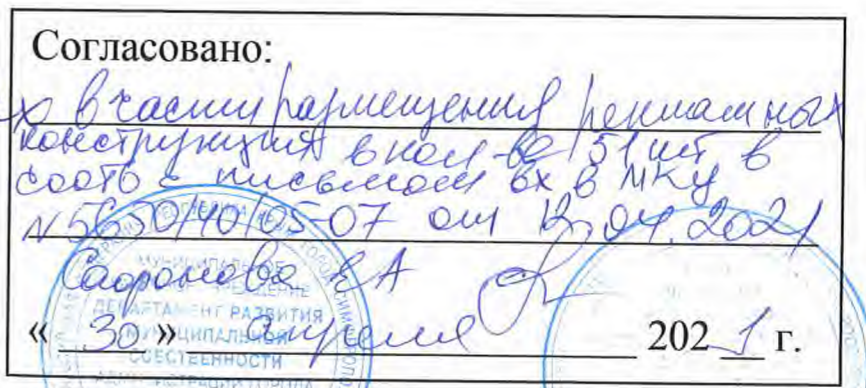 Согласовано:
х в части размещения рекламных
конструкций в кол-ве 51 шт в
соотв с письмом вх в МКУ
N5650/40/05-07 от 12.04.2021
Сафонова ЕА
« 30 » апреля 2021 г.
МУНИЦИПАЛЬНОЕ
УЧРЕЖДЕНИЕ
ДЕПАРТАМЕНТ РАЗВИТИЯ
МУНИЦИПАЛЬНОЙ
СОБСТВЕННОСТИ
АДМИНИСТРАЦИИ ГОРОДА